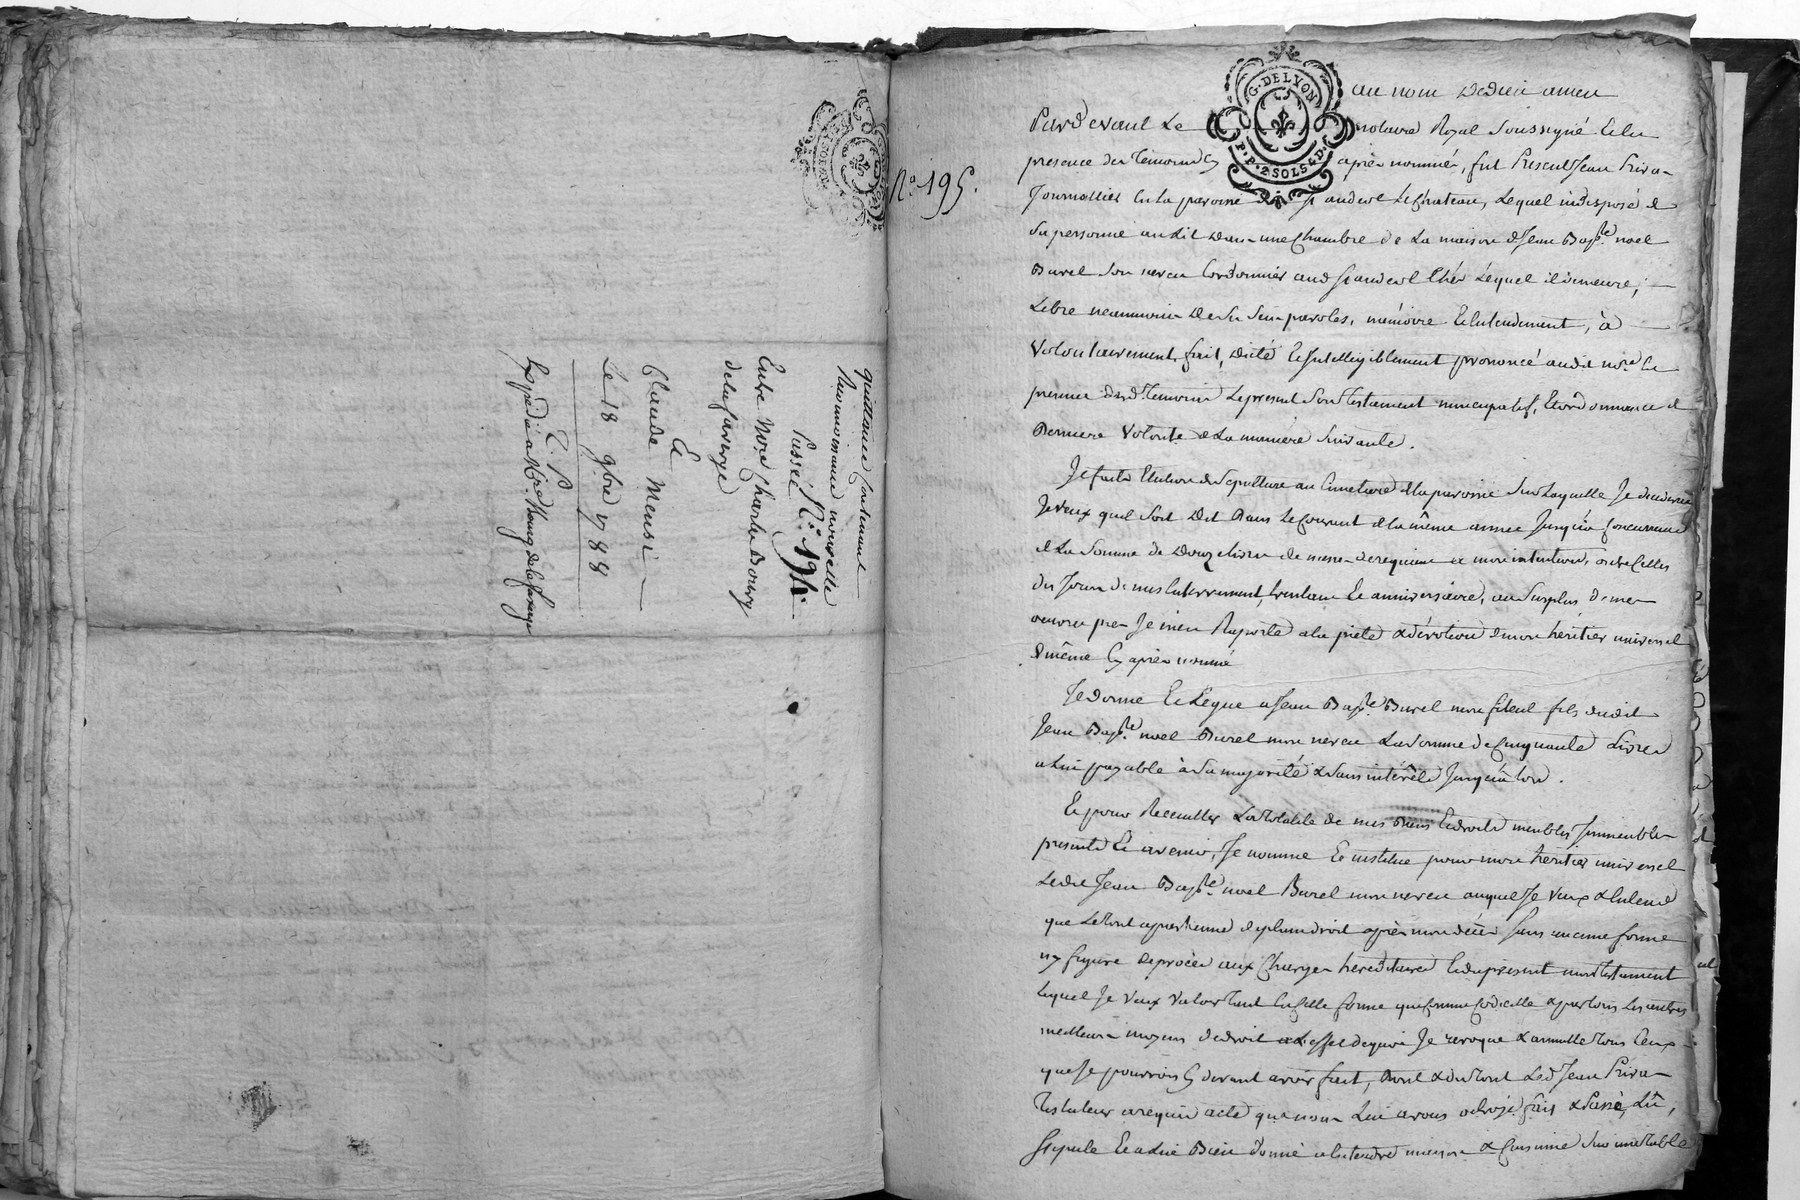 quittance Contenant
Reconnoissance nouvelle
Passée N.° 194.
Entre Mre Charle Boury
delafavergé
Et
Claude Meusi
Le 18 9bre 1788
Expédié a
G. DE LYON
P.P. 2 SOLS 8 D.
N.° 195.
au nom de Dieu amen
Pardevant Le notaire Royal Soussigné Et en
presence des Temoins Cy après nommés, fut Present Jean Priva
Journallier en la paroisse de St andeol Le Chateau, Lequel indisposé de
Sa personne au Lit dans une Chambre de La maison de Jean Bapte. noel
Burel Son neveu Cordonnier aud St andeol Chés Lequel il demeure,
Libre neanmoins de ses Sens paroles, mémoire Et Entendement, à
volontairement fait, dicté Et Intelligiblement prononcé audit nore. En
presence desd. Temoins Le present Son Testament nuncupatif, Et ordonnance de
Derniere Volonté de La maniere Suivante.
Je fais Election de Sepulture au Cimetiere de la paroisse Sur Laquelle Je decederai
Je veux quil Soit Dit Dans Le Courant de la même année Jusqu'à Concurrence
de La Somme de Douze Livres de messes de requiem a mon intention, outre Celles
des Jours de mes Enterrement, trentain Et anniversaire, au Surplus de mes
oeuvres pies Je m'en Raporte a la pieté & dévotion de mon heritier universel
de même Cy après nommé
Je donne Et Legue a Jean Bapte. Burel mon filleul fils dudit
Jean Bapte. noel Burel mon neveu La Somme de Cinquante Livres
a Lui payable à Sa majorité & Sans intérêts Jusqu'a Lors.
Et pour Recueillir La totalité de mes Biens Et droits meubles Immeubles
presents Et avenir, Je nomme Et institue pour mon heritier universel
Ledit Jean Bapte. noel Burel mon neveu auquel Je veux & Entend
que Le tout apartienne de plein droit après mon décès Sans aucune forme
ny figure de procès aux Charges hereditaires Et du present mon Testament
Lequel Je veux valoir Tant En Cette forme que Comme Codicille & par tous Les autres
meilleurs moyens de droit a L'effet de quoi Je revoque & annulle Tous Ceux
que Je pourrois Cy devant avoir fait, Dont & du tout Led Jean Priva
Testateur a requis acte que nous Lui avons octroyé fait & Passé, Lû,
Et a Lui Bien donné a Entendre maison & Cuisine Sur une table